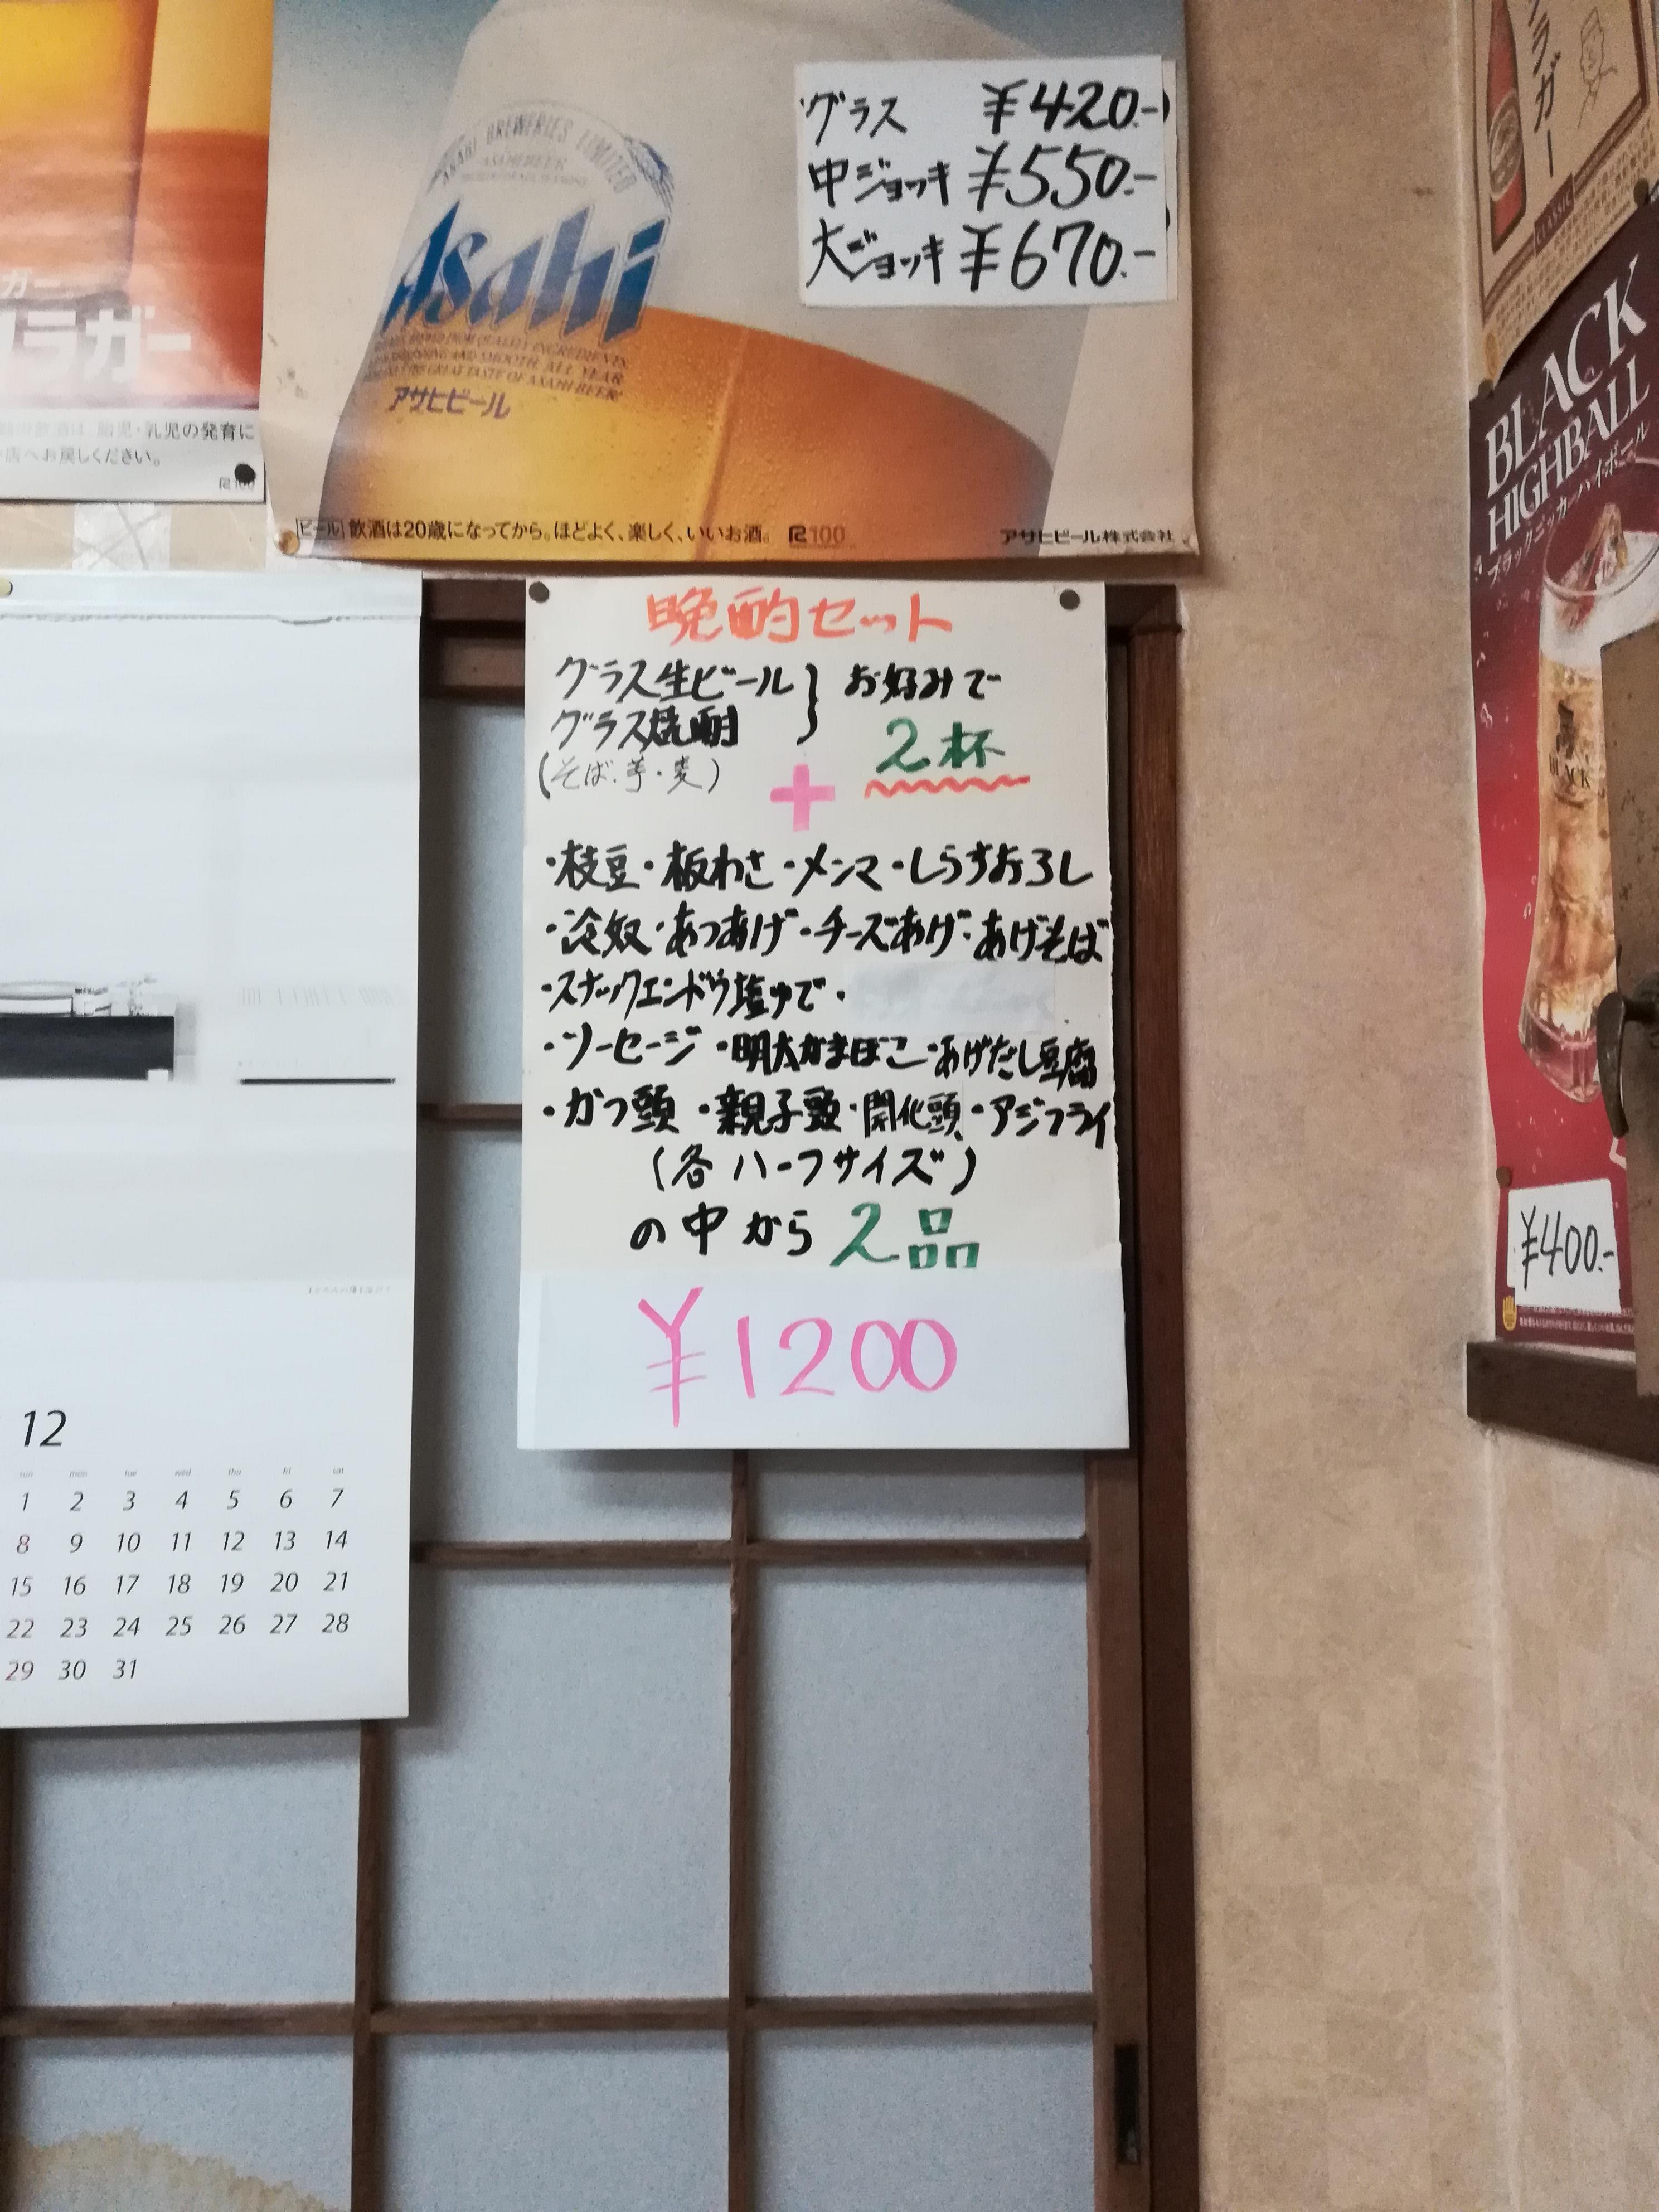 ガー。
ラガー
胎児・乳児の発育に
店へお戻しください。
ASAHI BREWERIES LIMITED
ASAHI BEER
Asahi
アサヒビール
グラス ¥420.-
中ジョッキ ¥550.-
大ジョッキ ¥670.-
ビール 飲酒は20歳になってから。ほどよく、楽しく、いいお酒。 R100 アサヒビール株式会社
晩酌セット
グラス生ビール
グラス焼酎
(そば・芋・麦)
お好みで
2杯
+
・枝豆・板わさ・メンマ・しらすおろし
・冷奴・あつあげ・チーズあげ・あげそば
・スナックエンドウ塩ゆで・
・ソーセージ・明太かまぼこ・あげだし豆腐
・かつ頭・親子頭・開化頭・アジフライ
(各ハーフサイズ)
の中から2品
¥1200
12
sun mon tue wed thu fri sat
1 2 3 4 5 6 7
8 9 10 11 12 13 14
15 16 17 18 19 20 21
22 23 24 25 26 27 28
29 30 31
ラガー
CLASSIC
BLACK
HIGHBALL
ブラックニッカハイボール
BLACK
¥400.-